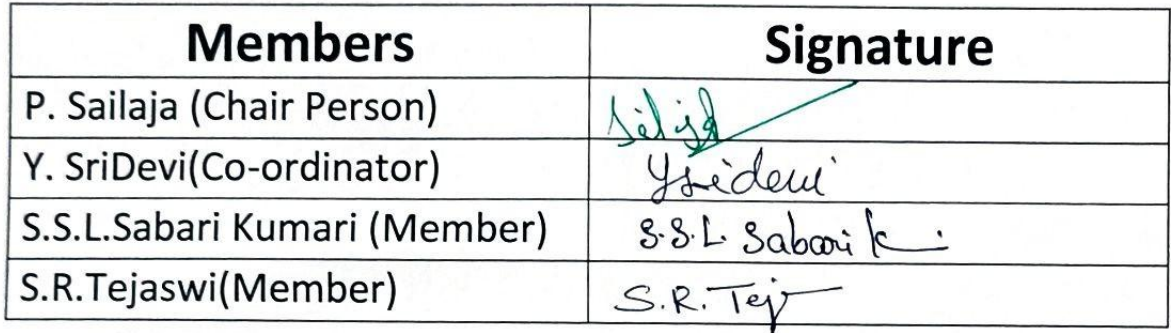 Members Signature
P. Sailaja (Chair Person)
Y. SriDevi(Co-ordinator) Ysridevi
S.S.L.Sabari Kumari (Member) S.S.L. Sabari K
S.R.Tejaswi(Member) S.R. Tej